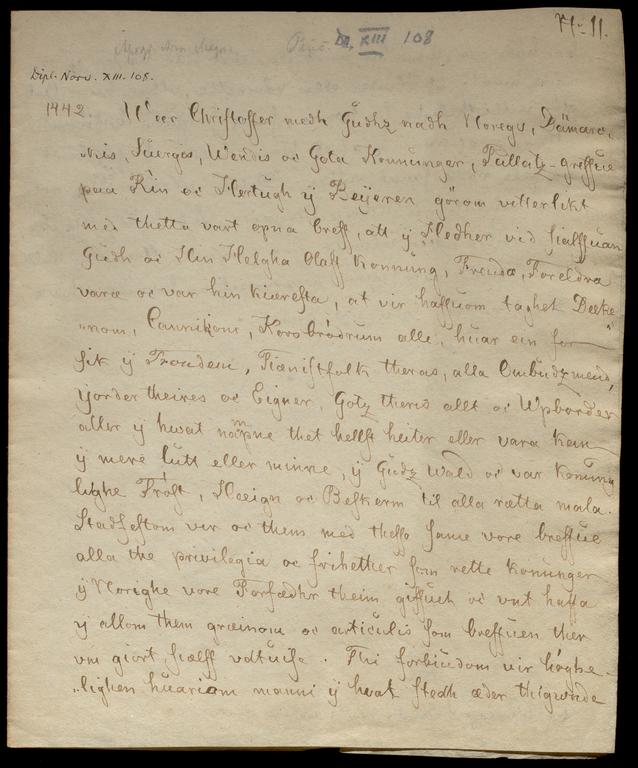 No. 11.
XIII 108
Dipl. Norv. XIII. 108.
1442. Wer Christoffer medh Gudhz nadh Noregs, Damarc-
kis, Suerges, Wendis oc Gota Konunger, Pallatz-greffue
paa Rin oc Hertugh y Beyeren görom vitterlikt
med thetta vart opna breff, att y Hedher vid sialffuan
Gudh oc Hin Helgha Olaff Konung, Frende, Foreldra
vara oc var hin kiæresta, at vir haffuom taghet Decke-
nom, Cannikom, Korsbrödrum alle, huar ein for
sik y Trondem, Tiænistfolk theras, alla Ombudzmend,
yorder theires oc Eigner, Gotz theris allt oc Wpbörder
aller y hwat nampne thet hellst heiter eller vara kan
y mere lutt eller minne, y Gudz Wald oc var konung
lighe Tröst, Heeign oc Beskerm til alla rætta mala.
Stadfestom vir oc them med thesso same vore breffue
alla the privilegia oc frihether som rette konunger
y Norighe vore Forfædhr theim giffuet oc vnt haffa
y allom them græinom oc articulis som breffuen ther
vm giort siælff vdtuise. Thi forbiudom vir höghe-
lighen huariom manni y hvat stedh æder thigwnde